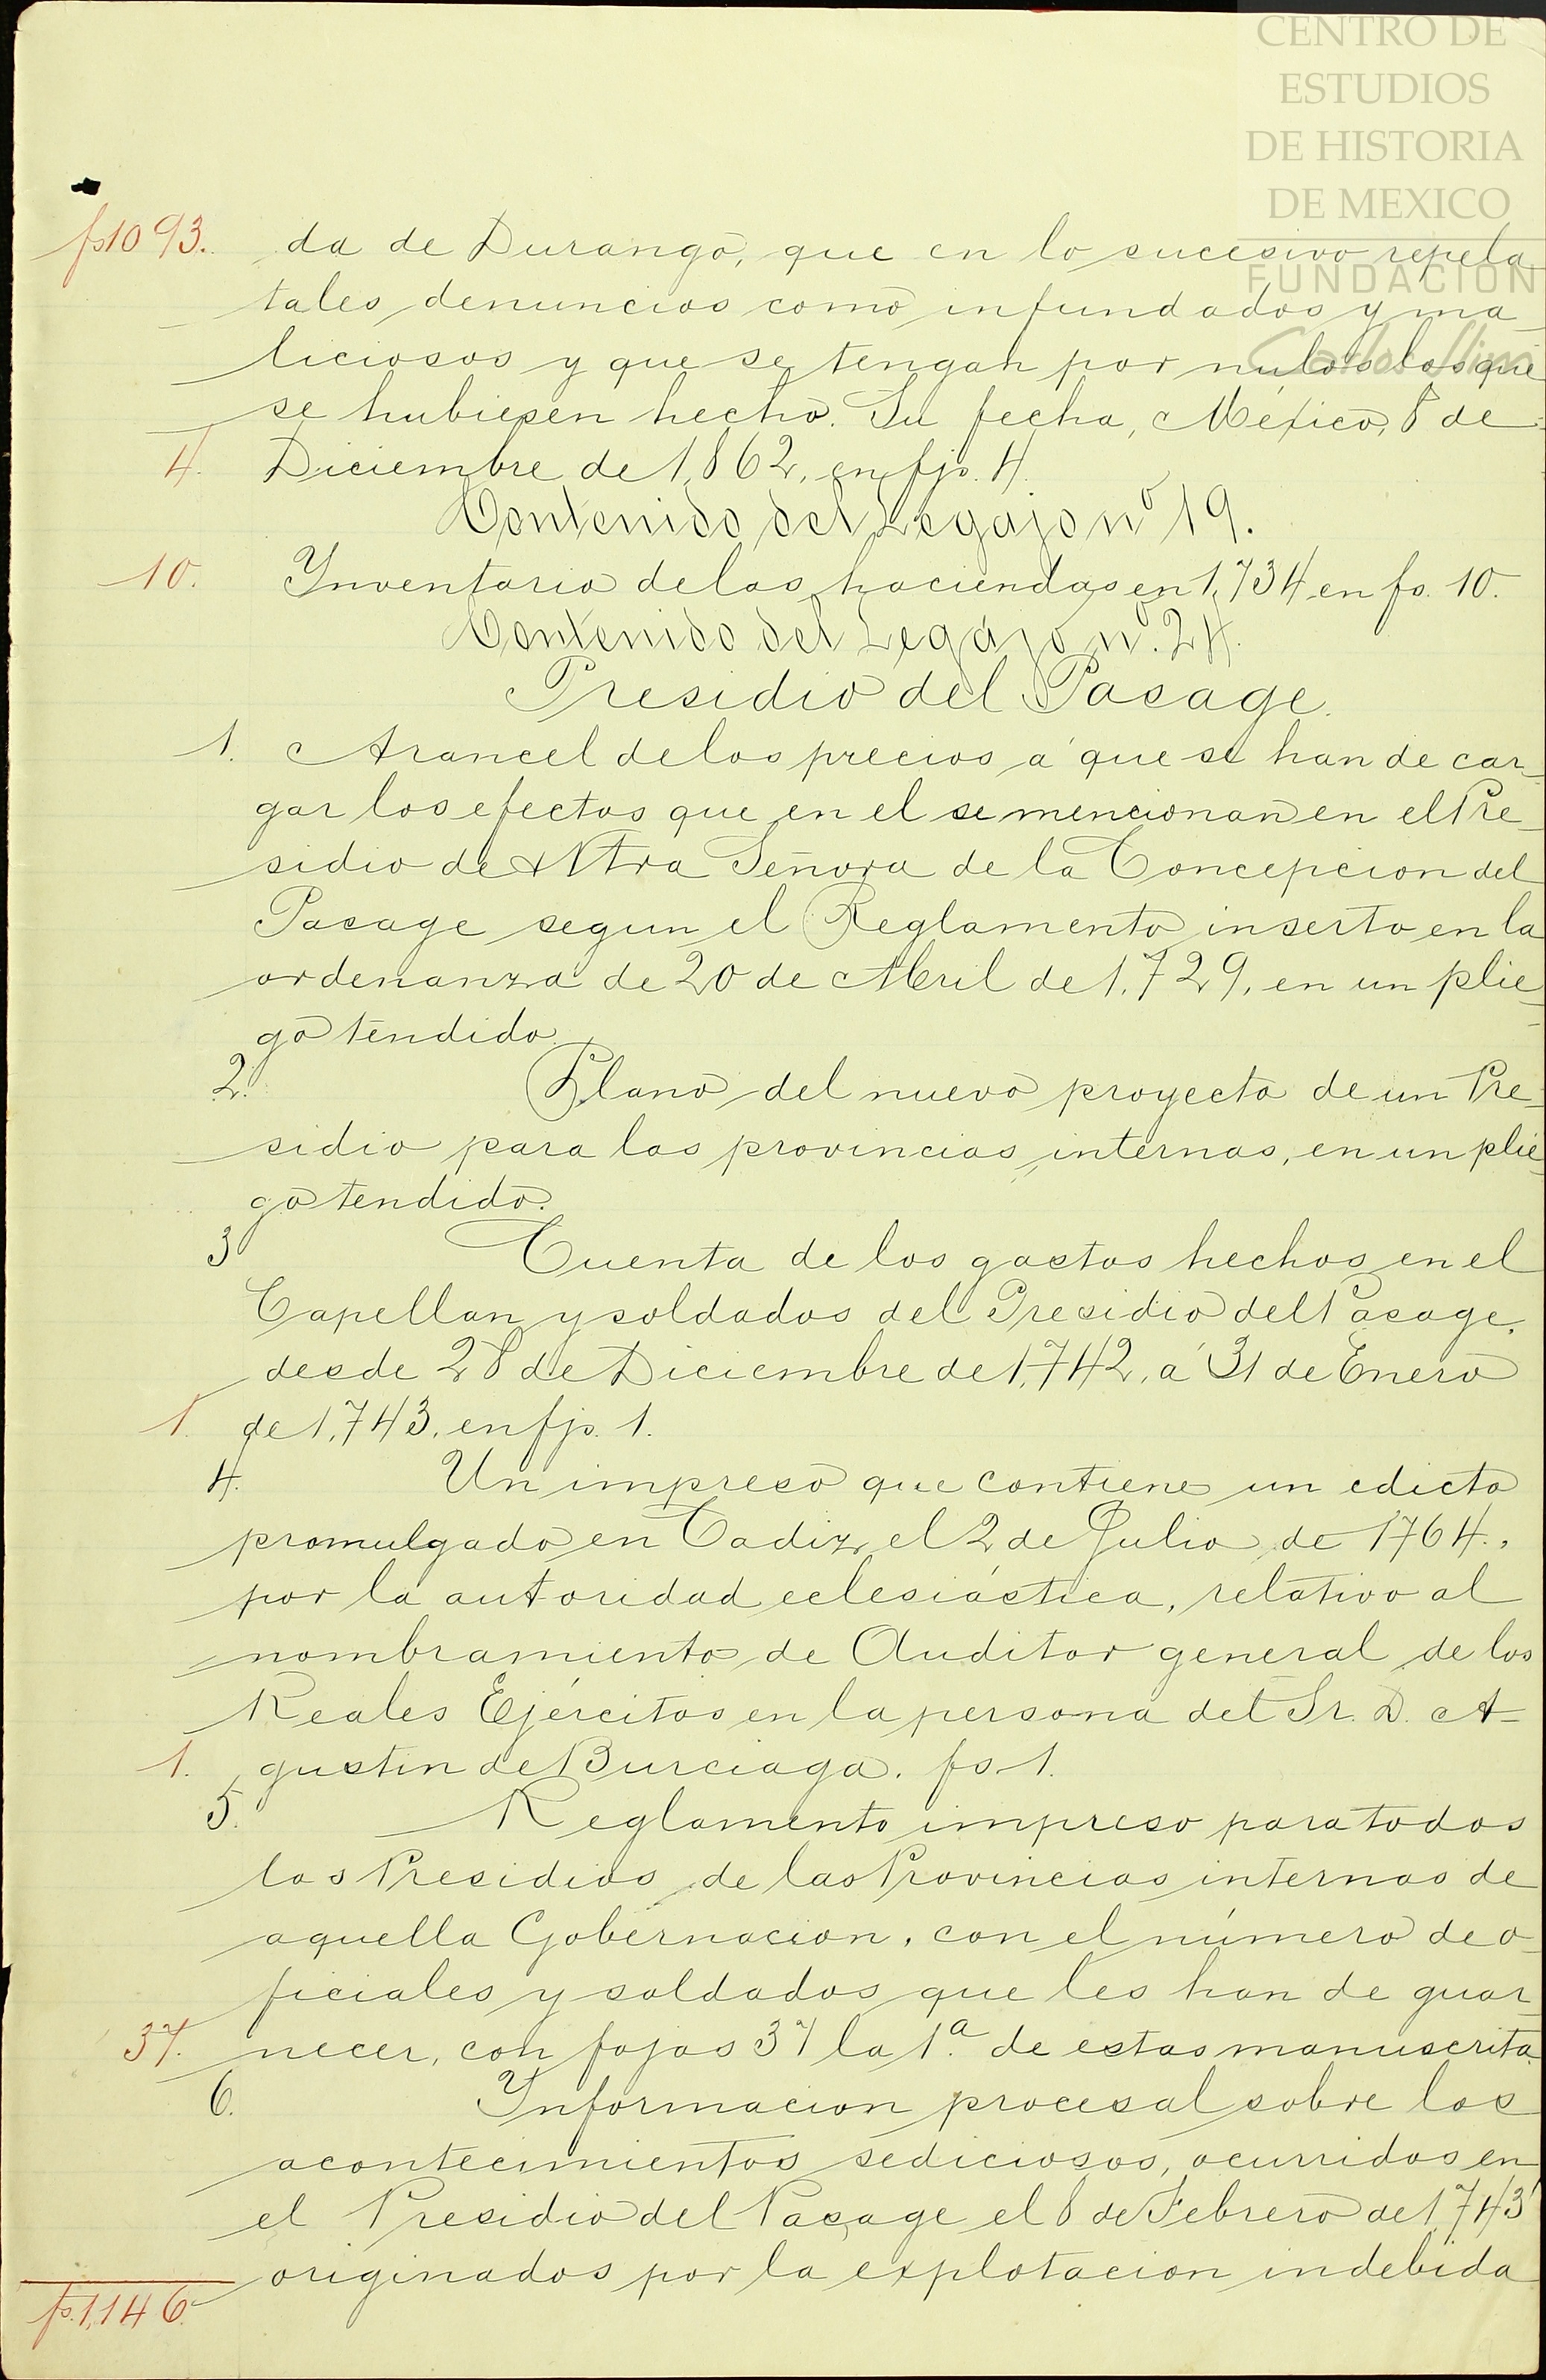 CENTRO DE
ESTUDIOS
DE HISTORIA
DE MEXICO
FUNDACIÓN
Carlos Slim
fs1093. da de Durango, que en lo sucesivo repela
tales denuncios como infundados y ma
liciosos y que se tengan por nulos los que
se hubiesen hecho. Su fecha, México, 8 de
4. Diciembre de 1,862, en fjs. 4.
Contenido del Legajo nº 19.
10. Ynventario de las haciendas en 1,734 en fs. 10.
Contenido del Legajo nº. 24.
Presidio del Pasage.
1. Arancel de los precios á que se han de car
gar los efectos que en el se mencionan en el Pre
sidio de Ntra Señora de la Concepcion del
Pasage segun el Reglamento inserto en la
ordenanza de 20 de Abril de 1,729, en un plie
go tendido.
2. Plano del nuevo proyecto de un Pre
sidio para las provincias internas, en un plie
go tendido.
3 Cuenta de los gastos hechos en el
Capellan y soldados del Presidio del Pasage,
desde 28 de Diciembre de 1,742, á 31 de Enero
1. de 1,743, en fjs. 1.
4. Un impreso que contiene un edicto
promulgado en Cadiz el 2 de Julio de 1764.,
por la autoridad eclesiástica, relativo al
nombramiento de Auditor general de los
Reales Ejércitos en la persona del Sr. D. A
1. gustin de Burciaga. fs. 1.
5. Reglamento impreso para todos
los Presidios de las Provincias internas de
aquella Gobernacion, con el número de o
ficiales y soldados que les han de guar
37. necer, con fojas 37 la 1ª. de estas manuscrita.
6. Ynformacion procesal sobre los
acontecimientos sediciosos, ocurridos en
el Presidio del Pasage el 8 de Febrero de 1,743
originados por la explotacion indebida
fs.1,146.